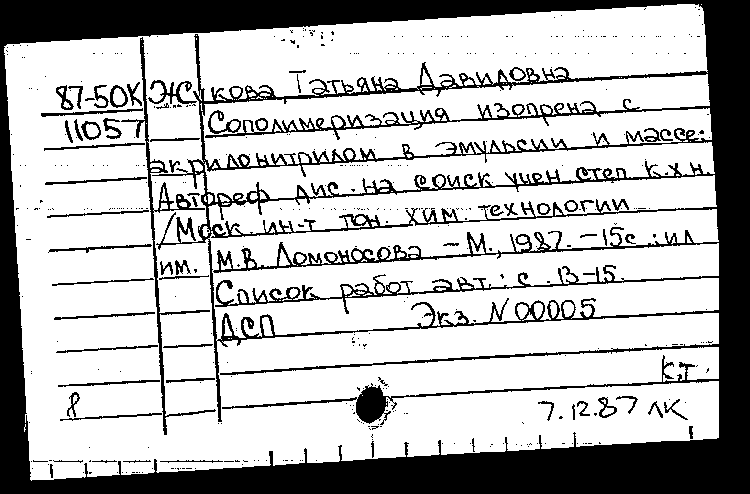 87-50К Жукова, Татьяна Давидовна
11057 Сополимеризация изопрена с
акрилонитрилом в эмульсии и массе:
Автореф дис. на соиск учен степ к.х.н.
/Моск. ин-т тон. хим. технологии
им. М.В. Ломоносова. - М., 1987. - 15с.: ил
Список работ авт.: с. 13-15.
ДСП Экз. N 00005
К.Т.
8 7.12.87 ЛК